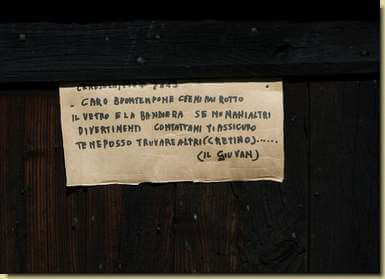 - CARO BPONTEMPONE CHE MI AI ROTTO
IL VETRO E LA BANDIERA SE NON AI ALTRI
DIVERTIMENTI CONTATTAMI TI ASSICURO
TE NE POSSO TRUVARE ALTRI (CRETINO)......
(IL GIUVAN)